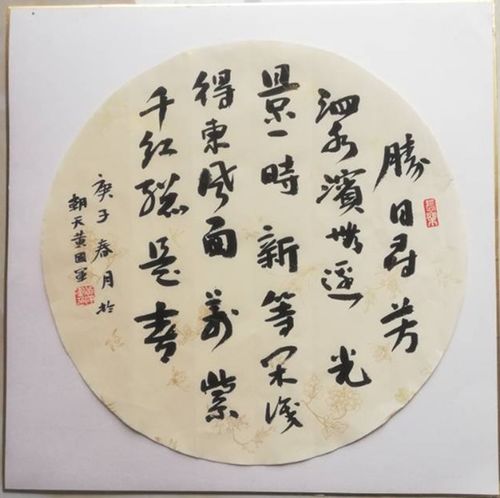 勝日尋芳
泗水濱無邊光
景一時新等閑識
得東風面萬紫
千紅總是春
庚子春月於
朝天黄國軍